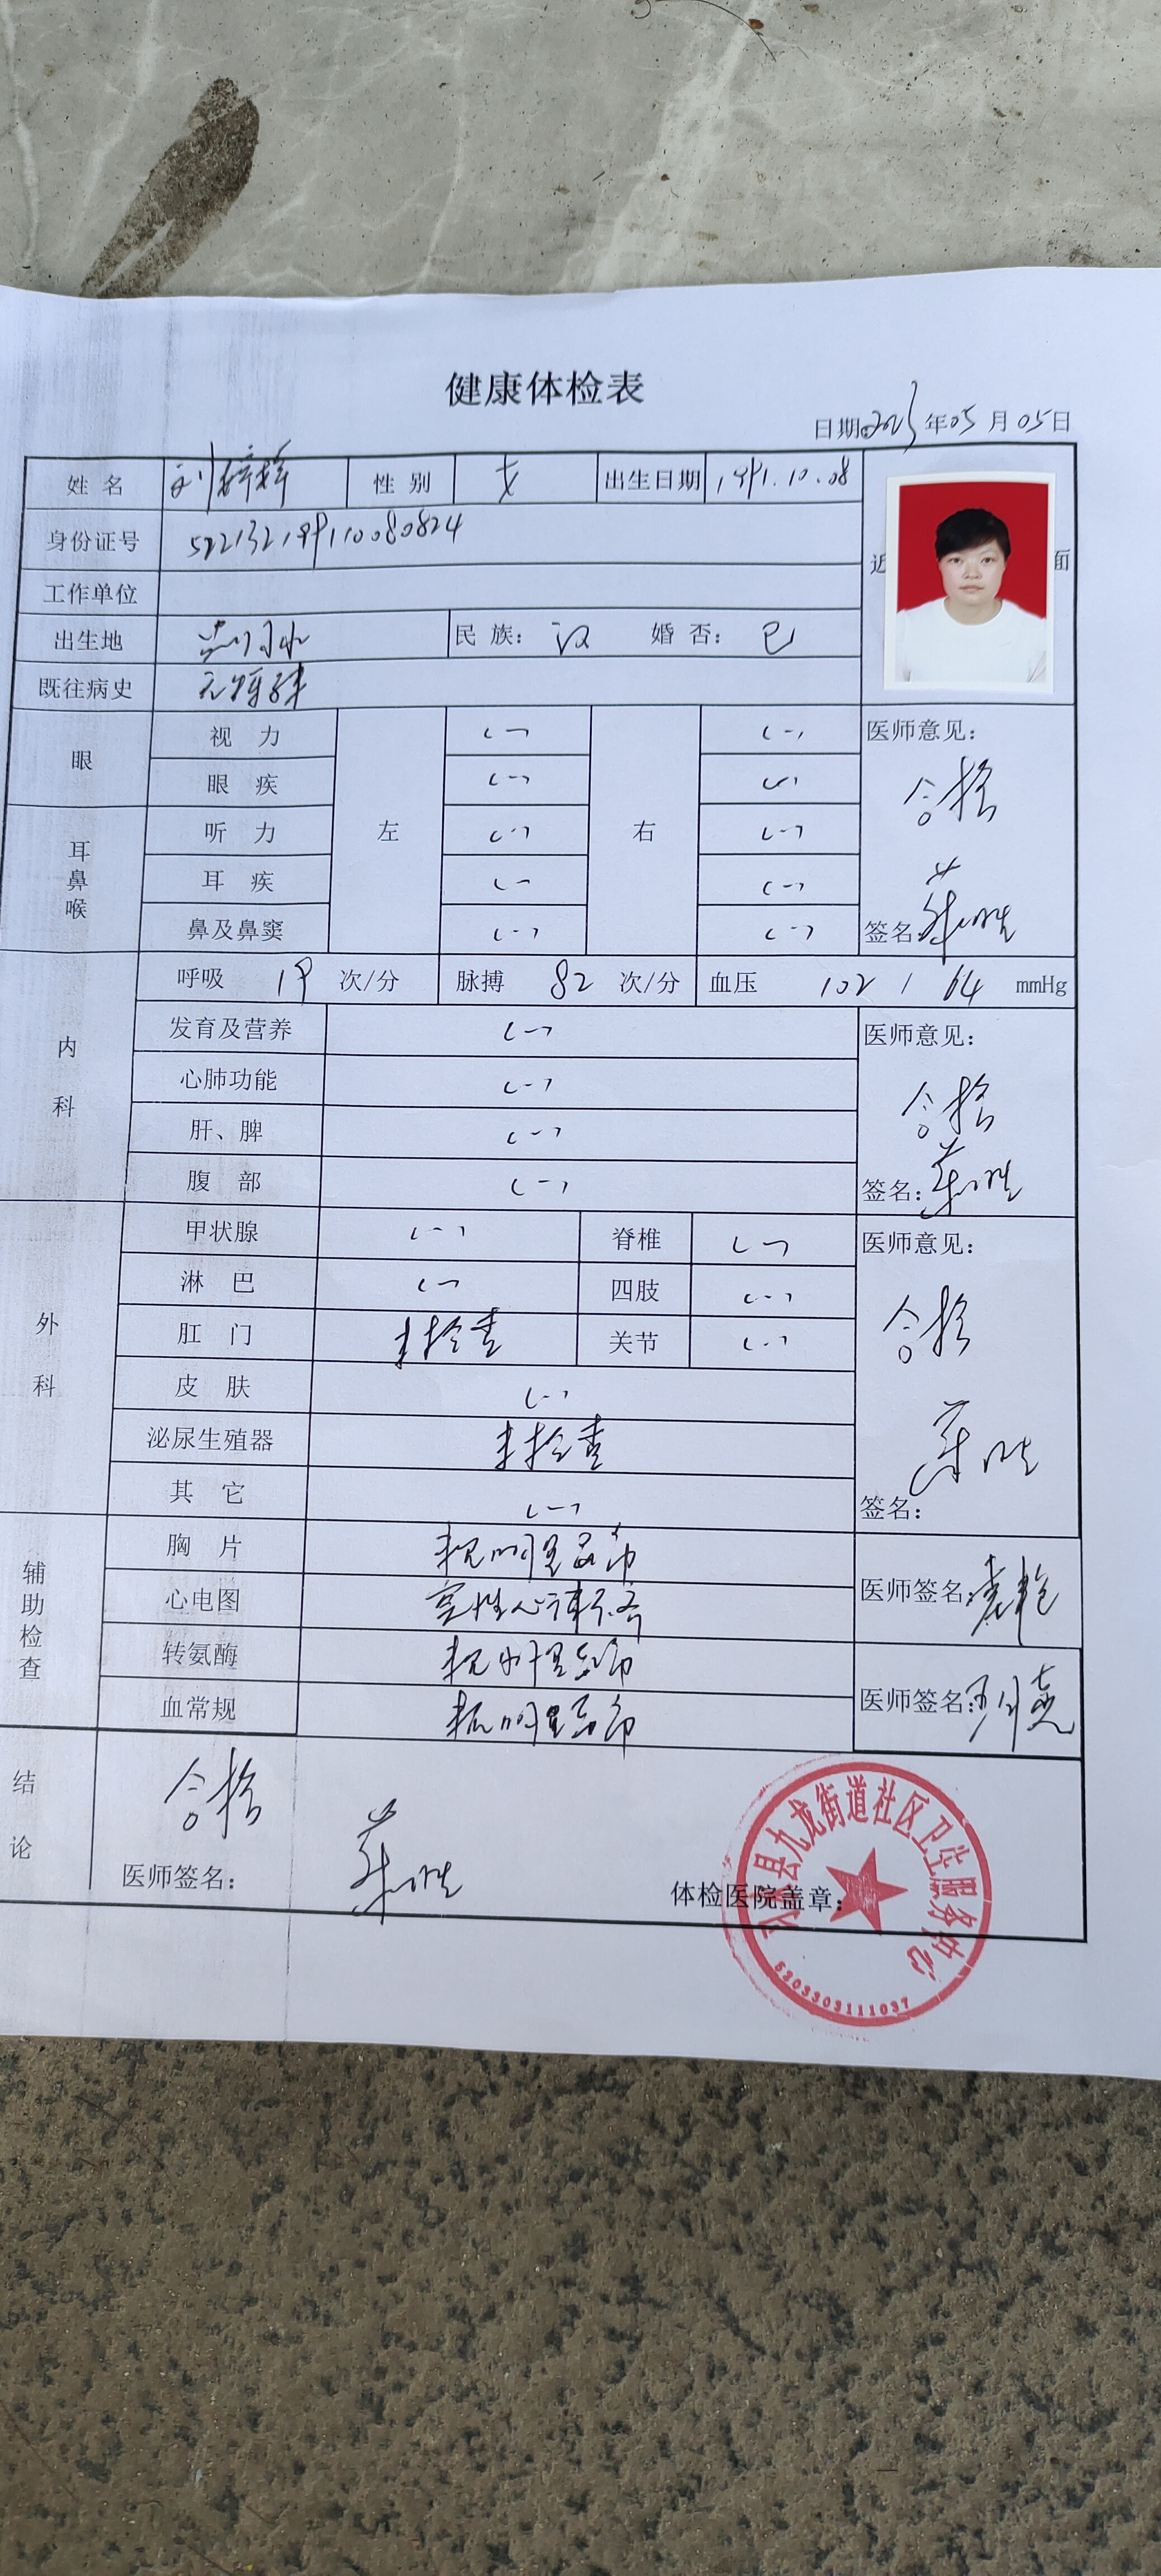 健康体检表
日期: 2023年05月05日
姓名 刘 性别 女 出生日期 1991.10.08
身份证号 522132199110080824
工作单位
出生地 习水 民族: 汉 婚否: 已
近 面
既往病史 无特殊
眼 视力 左 (-) 右 (-) 医师意见:
眼疾 (-) (-) 合格
耳鼻喉 听力 (-) (-)
耳疾 (-) (-)
鼻及鼻窦 (-) (-) 签名:
内科 呼吸 19 次/分 脉搏 82 次/分 血压 102 / 64 mmHg
发育及营养 (-) 医师意见:
心肺功能 (-) 合格
肝、脾 (-)
腹部 (-) 签名:
外科 甲状腺 (-) 脊椎 (-) 医师意见:
淋巴 (-) 四肢 (-) 合格
肛门 未检查 关节 (-)
皮肤 (-)
泌尿生殖器 未检查
其它 (-) 签名:
辅助检查 胸片 未见明显异常
心电图 窦性心律不齐 医师签名: 袁艳
转氨酶 未见明显异常
血常规 未见明显异常 医师签名:
结论 合格
医师签名: 体检医院盖章:
县九龙街道社区卫生服务中心
5203303111037